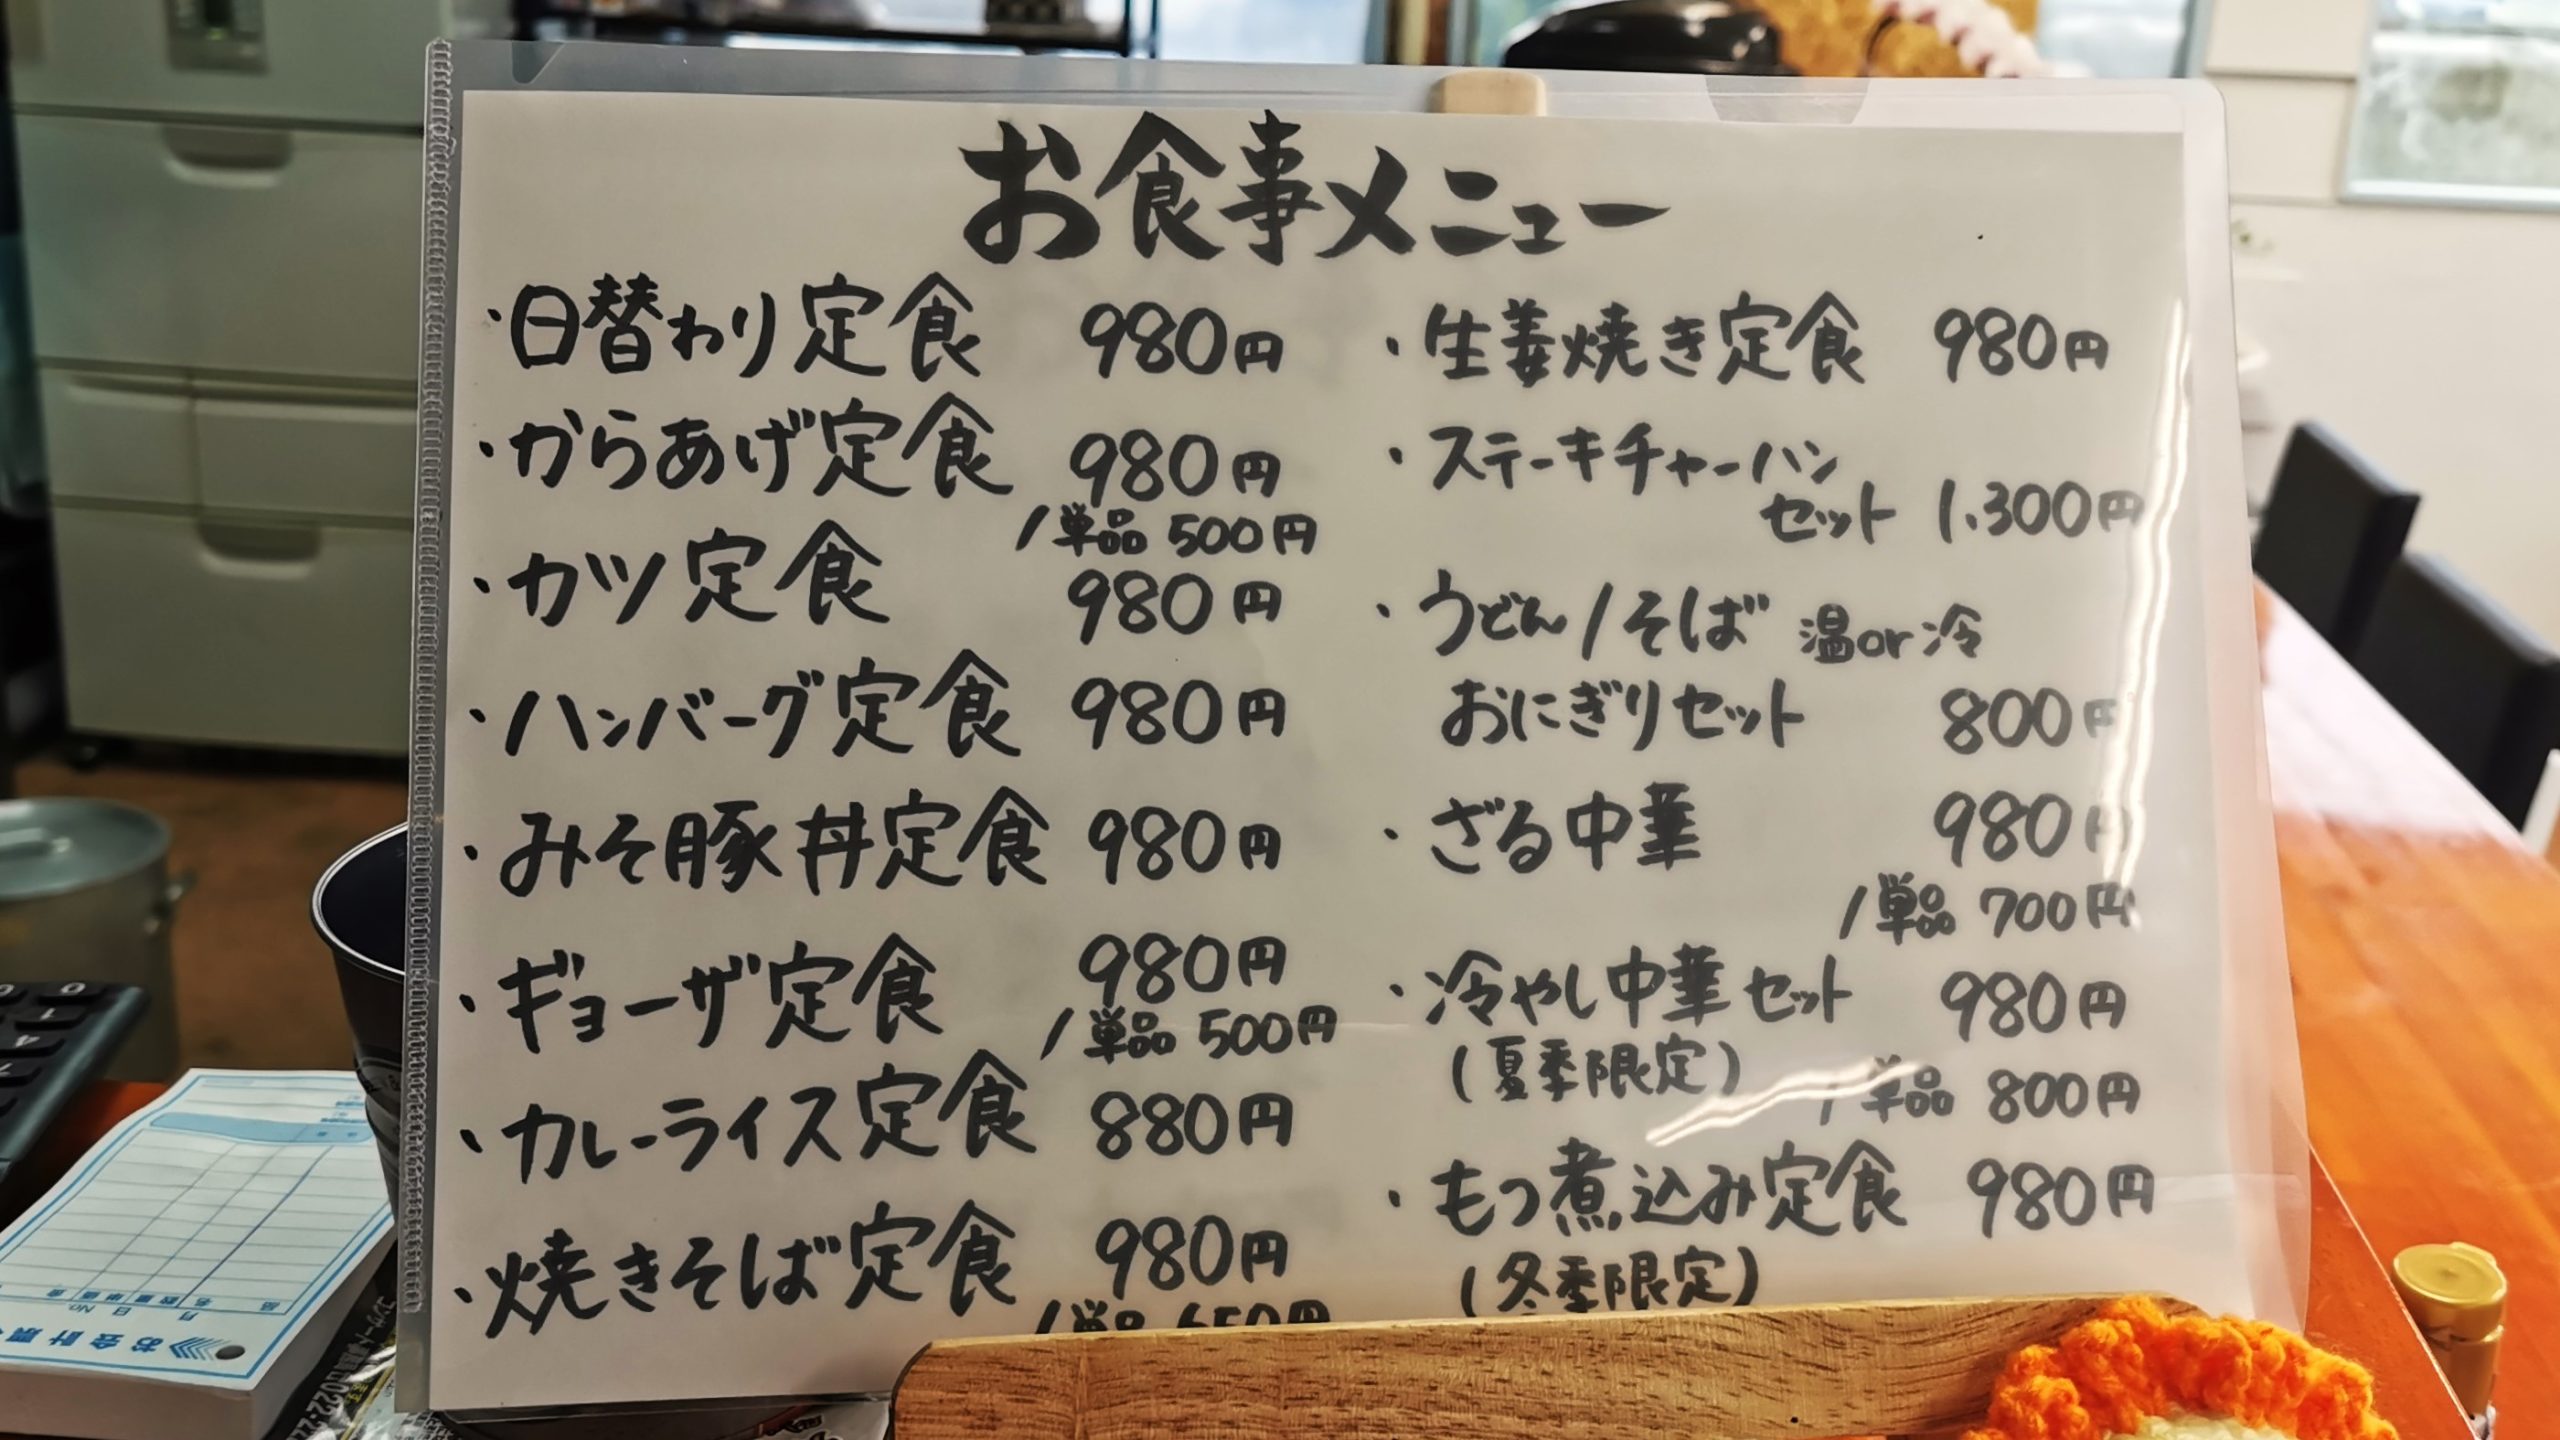 お食事メニュー
・日替わり定食 980円
・からあげ定食 980円
/単品 500円
・カツ定食 980円
・ハンバーグ定食 980円
・みそ豚丼定食 980円
・ギョーザ定食 980円
/単品 500円
・カレーライス定食 880円
・焼きそば定食 980円
/単品 650円
・生姜焼き定食 980円
・ステーキチャーハン
セット 1.300円
・うどん/そば 温or冷
おにぎりセット 800円
・ざる中華 980円
/単品 700円
・冷やし中華セット 980円
(夏季限定)
/単品 800円
・もつ煮込み定食 980円
(冬季限定)
お会計票